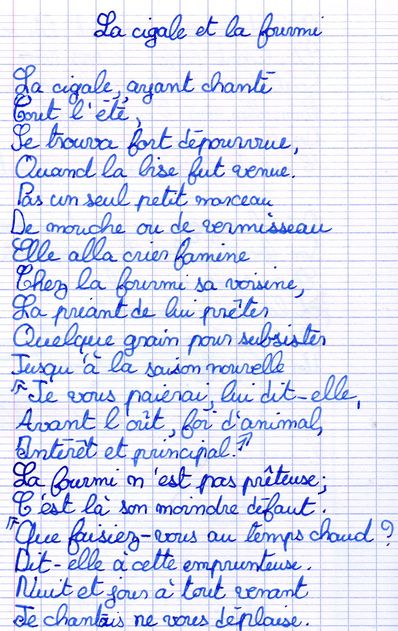 La cigale et la fourmi
La cigale, ayant chanté
Tout l'été,
Se trouva fort dépourvue,
Quand la bise fut venue.
Pas un seul petit morceau
De mouche ou de vermisseau
Elle alla crier famine
Chez la fourmi sa voisine,
La priant de lui prêter
Quelque grain pour subsister
Jusqu'à la saison nouvelle
"Je vous paierai, lui dit-elle,
Avant l'oût, foi d'animal,
Intérêt et principal."
La fourmi n'est pas prêteuse;
C'est là son moindre défaut.
"Que faisiez-vous au temps chaud ?
Dit-elle à cette emprunteuse.
Nuit et jour à tout venant
Je chantais ne vous déplaise.